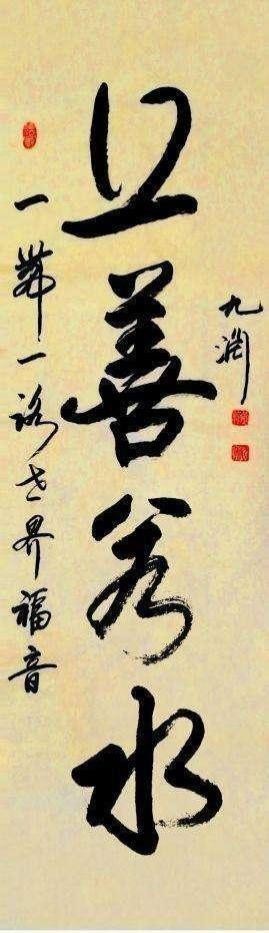 上善若水
一带一路世界福音
九渊